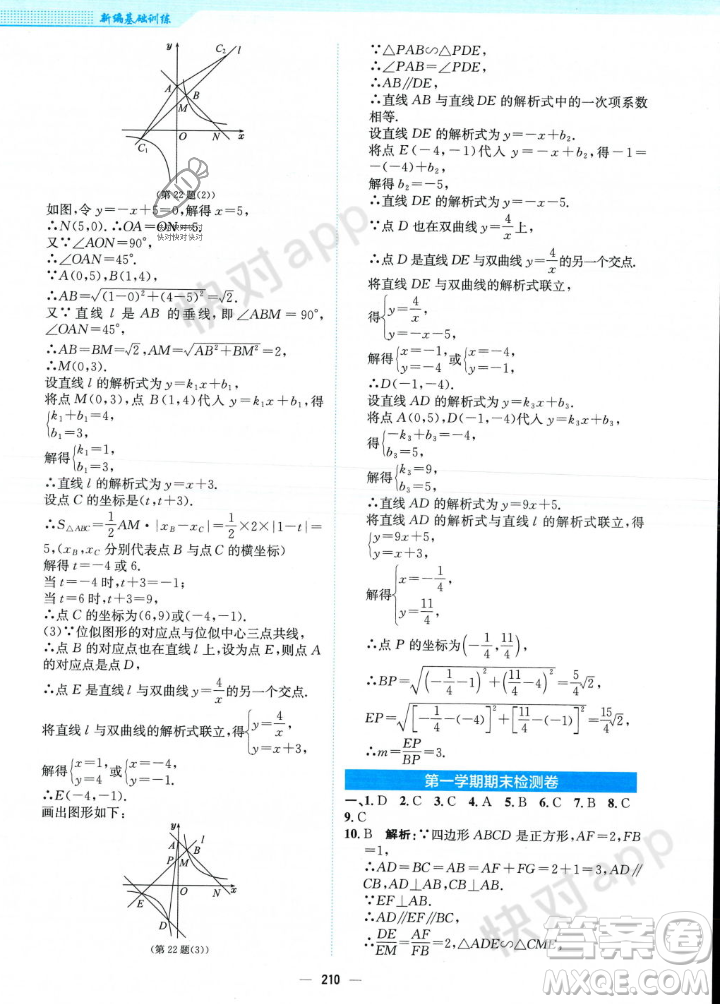 新编基础训练
y
C₂
l
A
B
M
O
N
x
C₁
(第22题(2))
如图,令y=-x+5=0,解得x=5,
∴N(5,0).∴OA=ON=5,
又∵∠AON=90°,
∴∠OAN=45°.
∵A(0,5),B(1,4),
∴AB=√((1-0)²+(4-5)²)=√2.
又∵直线 l 是 AB 的垂线,即∠ABM=90°,
∠OAN=45°,
∴AB=BM=√2,AM=√(AB²+BM²)=2,
∴M(0,3).
设直线 l 的解析式为 y=k₁x+b₁,
将点 M(0,3),点 B(1,4)代入 y=k₁x+b₁,得
{k₁+b₁=4,
b₁=3,
解得{k₁=1,
b₁=3,
∴直线 l 的解析式为 y=x+3.
设点 C 的坐标是(t,t+3).
∴S△ABC=1/2 AM·|x_B-x_C|=1/2×2×|1-t|=
5,(x_B,x_C 分别代表点 B 与点 C 的横坐标)
解得 t=-4 或 6.
当 t=-4 时,t+3=-1;
当 t=6 时,t+3=9,
∴点 C 的坐标为(6,9)或(-4,-1).
(3)∵位似图形的对应点与位似中心三点共线,
∴点 B 的对应点也在直线 l 上,不妨设为点 E,则点 A
的对应点是点 D,
∴点 E 是直线 l 与双曲线 y=4/x 的另一个交点.
将直线 l 与双曲线的解析式联立,得{y=4/x,
y=x+3,
解得{x=1,
y=4
或{x=-4,
y=-1.
画出图形如下:
y
l
A
B
P
M
O
N
x
E
D
(第22题(3))
∵△PAB∽△PDE,
∴∠PAB=∠PDE,
∴AB∥DE,
∴直线 AB 与直线 DE 的解析式中的一次项系数
相等.
设直线 DE 的解析式为 y=-x+b₂.
将点 E(-4,-1)代入 y=-x+b₂,得-1=-(-4)+b₂,
解得 b₂=-5.
∴直线 DE 的解析式为 y=-x-5.
∵点 D 也在双曲线 y=4/x上,
∴点 D 是直线 DE 与双曲线 y=4/x的另一个交点.
将直线 DE 与双曲线的解析式联立,
得{y=4/x,
y=-x-5.
解得{x=-1,
y=-4
或{x=-4,
y=-1.
∴D(-1,-4).
设直线 AD 的解析式为 y=k₃x+b₃,
将点 A(0,5),D(-1,-4)代入 y=k₃x+b₃,
得{-k₃+b₃=-4,
b₃=5,
解得{k₃=9,
b₃=5,
∴直线 AD 的解析式为 y=9x+5.
将直线 AD 的解析式与直线 l 的解析式联立,得
{y=9x+5,
y=x+3,
解得{x=-1/4,
y=11/4,
∴点 P 的坐标为(-1/4,11/4),
∴BP=√((-1/4-1)²+(11/4-4)²)=5/4√2,
EP=√([-1/4-(-4)]²+[11/4-(-1)]²)=15/4√2,
∴m=EP/BP=3.
第一学期期末检测卷
一、1. D 2. C 3. C 4. A 5. B 6. B 7. B 8. C
9. C
10. B 解析:∵四边形 ABCD 是正方形,AF=2,FB
=1,
∴AD=BC=AB=AF+FB=2+1=3,AD∥
CB,AD⊥AB,CB⊥AB.
∵EF⊥AB.
∴AD∥EF∥BC,
∴DE/EM=AF/FB=2,△ADE∽△CME,
210
快对app
快对app
快对app
快对快对快对
快对快对快对
答案圈
MXQE.COM